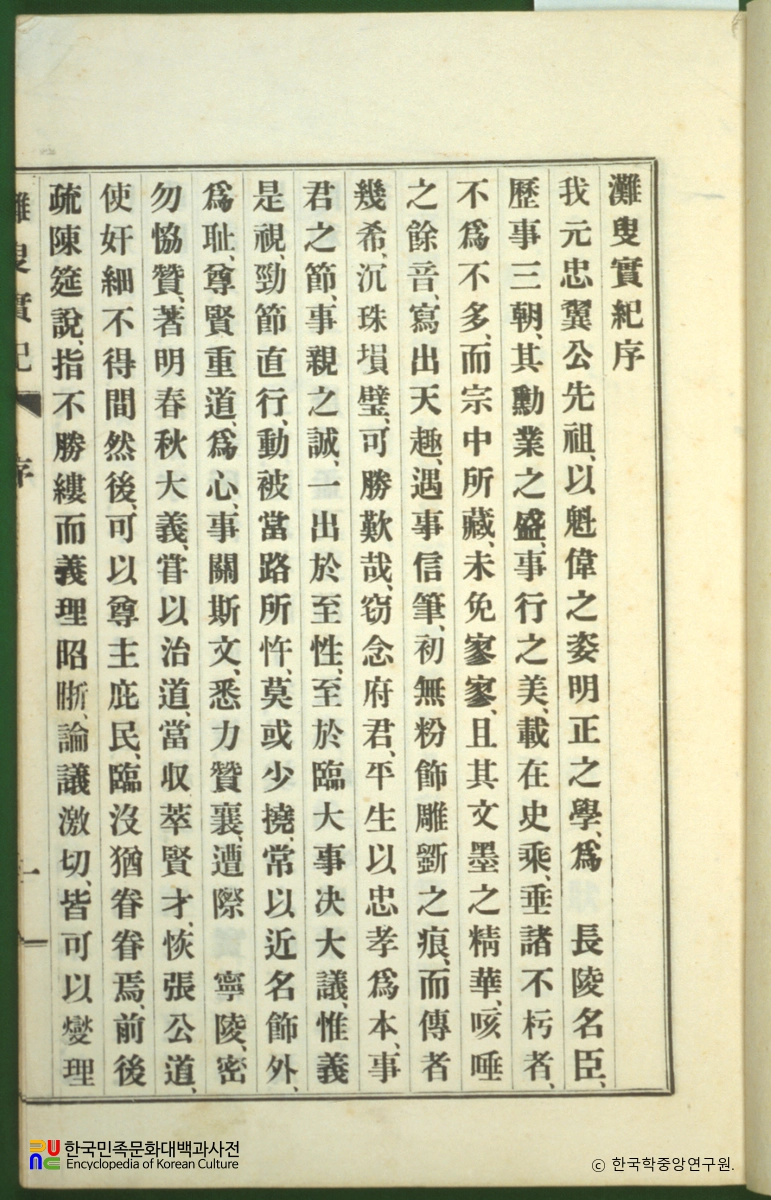 灘叟實紀序
我元忠翼公先祖、以魁偉之姿明正之學、爲　長陵名臣、
歷事三朝、其勳業之盛、事行之美、載在史乘、垂諸不朽者、
不爲不多、而宗中所藏、未免寥寥、且其文墨之精華、咳唾
之餘音、寫出天趣、遇事信筆、初無粉飾雕劉之痕、而傳者
幾希、沉珠塤璧、可勝歎哉、窃念府君、平生以忠孝爲本、事
君之節、事親之誠、一出於至性、至於臨大事決大議、惟義
是視、勁節直行、動被當路所忤、莫或少撓、常以近名飾外、
爲耻、尊賢重道、爲心、事關斯文、悉力贊襄、遭際　寧陵、密
勿恊贊、著明春秋大義、甞以治道、當収萃賢才、恢張公道、
使奸細不得間然後、可以尊主庇民、臨沒猶眷眷焉、前後
疏陳筵說、指不勝縷而義理昭晣、論議激切、皆可以燮理
灘叟實紀　序　一
한국민족문화대백과사전
Encyclopedia of Korean Culture
© 한국학중앙연구원.